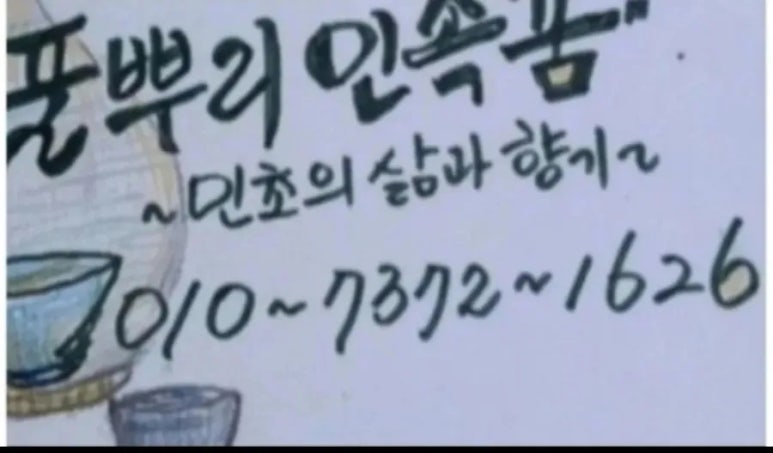 풀뿌리 민속품
~민초의 삶과 향기~
010~7372~1626